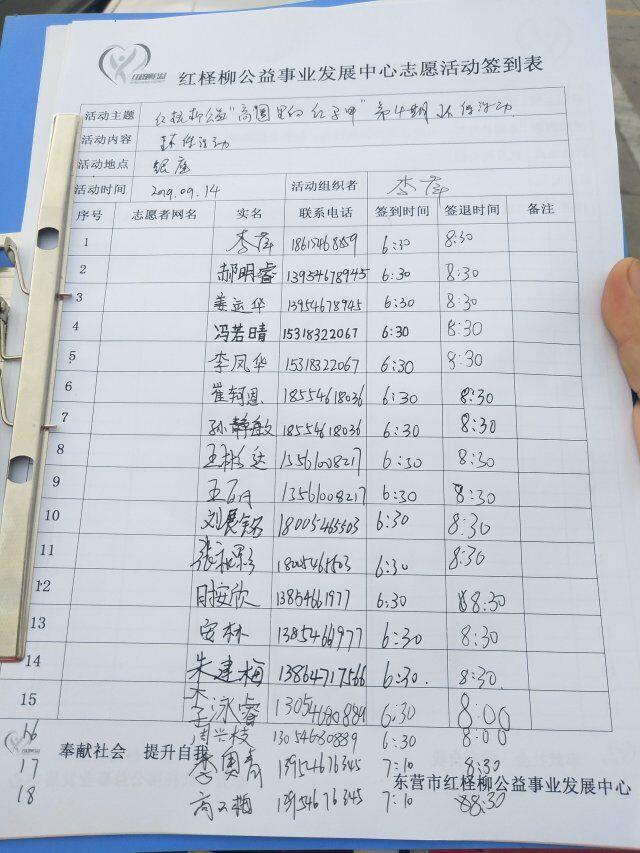 红柽柳公益事业发展中心志愿活动签到表
活动主题 红柽柳公益"高温里的红马甲"第4期环保活动
活动内容 环保活动
活动地点 银座
活动时间 2019.09.14 活动组织者 李萍
序号 志愿者网名 实名 联系电话 签到时间 签退时间 备注
1 李萍 6:30 8:30
2 郝明睿 13954678945 6:30 8:30
3 姜运华 13954678945 6:30 8:30
4 冯若晴 15318322067 6:30 8:30
5 李凤华 15318322067 6:30 8:30
6 崔轲恩 18554618036 6:30 8:30
7 孙静敏 18554618036 6:30 8:30
8 13561008217 6:30 8:30
9 13561008217 6:30 8:30
10 刘晨铭 18005465503 6:30 8:30
11 6:30 8:30
12 13854661977 6:30 8:30
13 安林 13854661977 6:30 8:30
14 朱建梅 13864717566 6:30. 8:30.
15 李泳睿 6:30 8:00
16 周兴枝 13054680889 6:30 8:00
奉献社会 提升自我
17 13954676345 7:10 8:30
东营市红柽柳公益事业发展中心
18 13954676345 7:10 8:30